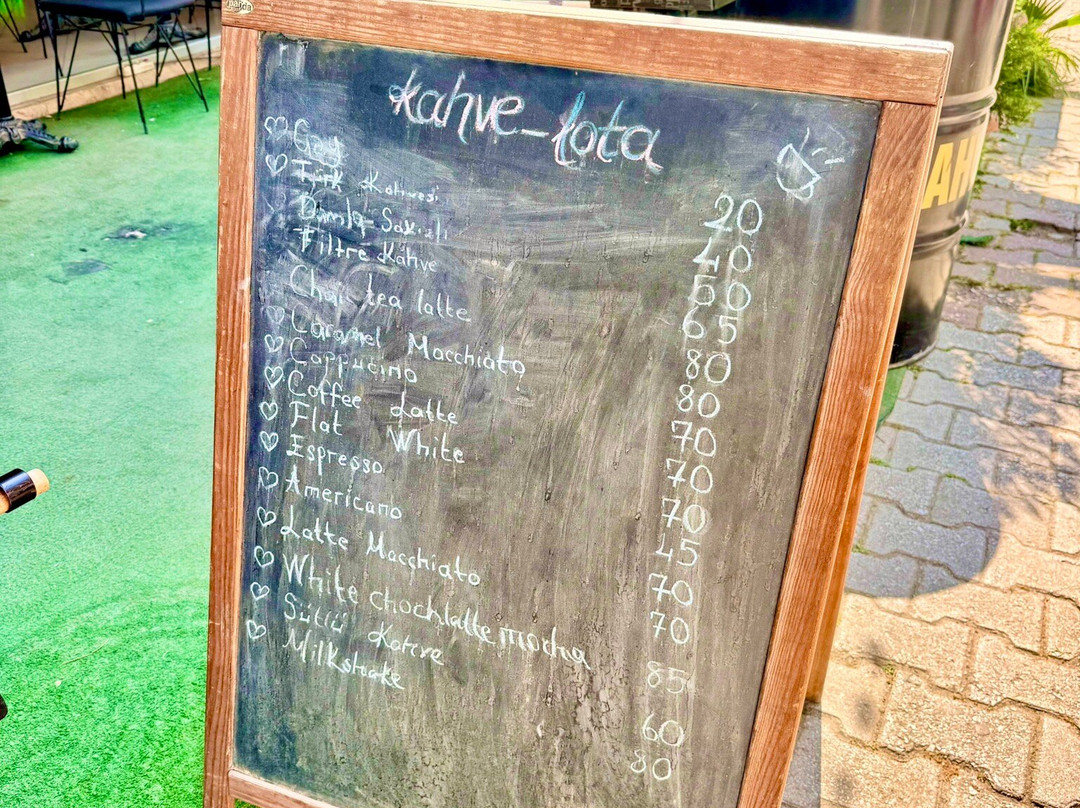 Kahve-lota
Çay 20
Türk Kahvesi 40
Damla Sakızlı 50
Filtre Kahve 65
Chai tea latte 80
Caramel Macchiato 80
Cappucino 70
Coffee Latte 70
Flat White 70
Espresso 45
Americano 70
Latte Macchiato 70
White chochlatte mocha 85
Sütlü Kahve 60
Milkshake 80
AH